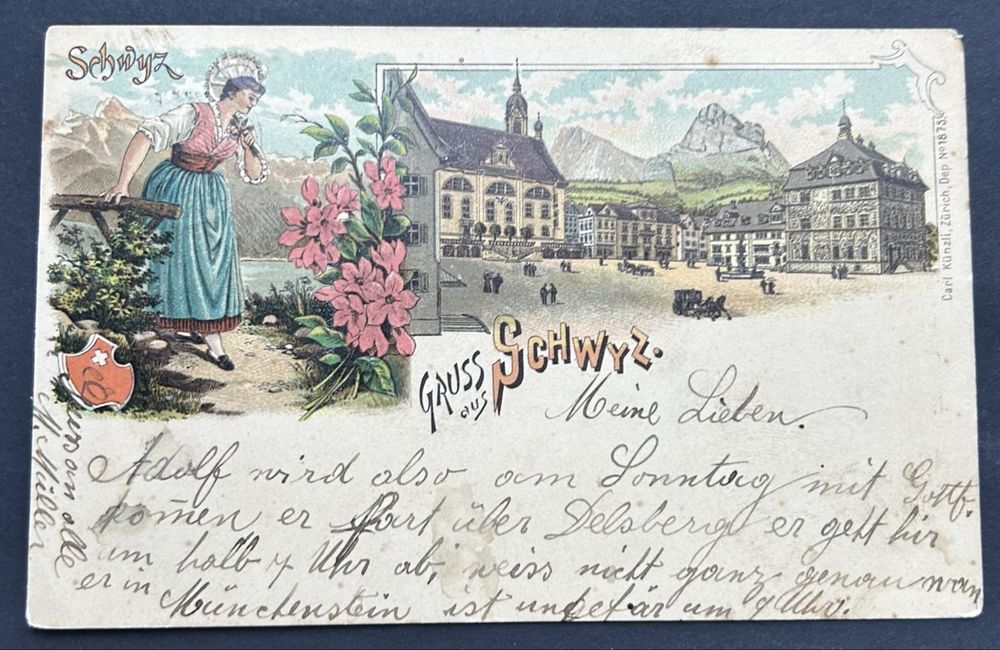 Schwyz
Carl Künzli, Zürich, Dep. No 1875.
GRUSS
aus
SCHWYZ.
Meine Lieben.
Adolf wird also am Sonntag mit Gottf.
kom̄en er fart über Delsberg er geht hir
um halb 7 Uhr ab, weiss nicht ganz genau wan
er in Münchenstein ist ungefär um 9 Uhr.
an alle
Müller